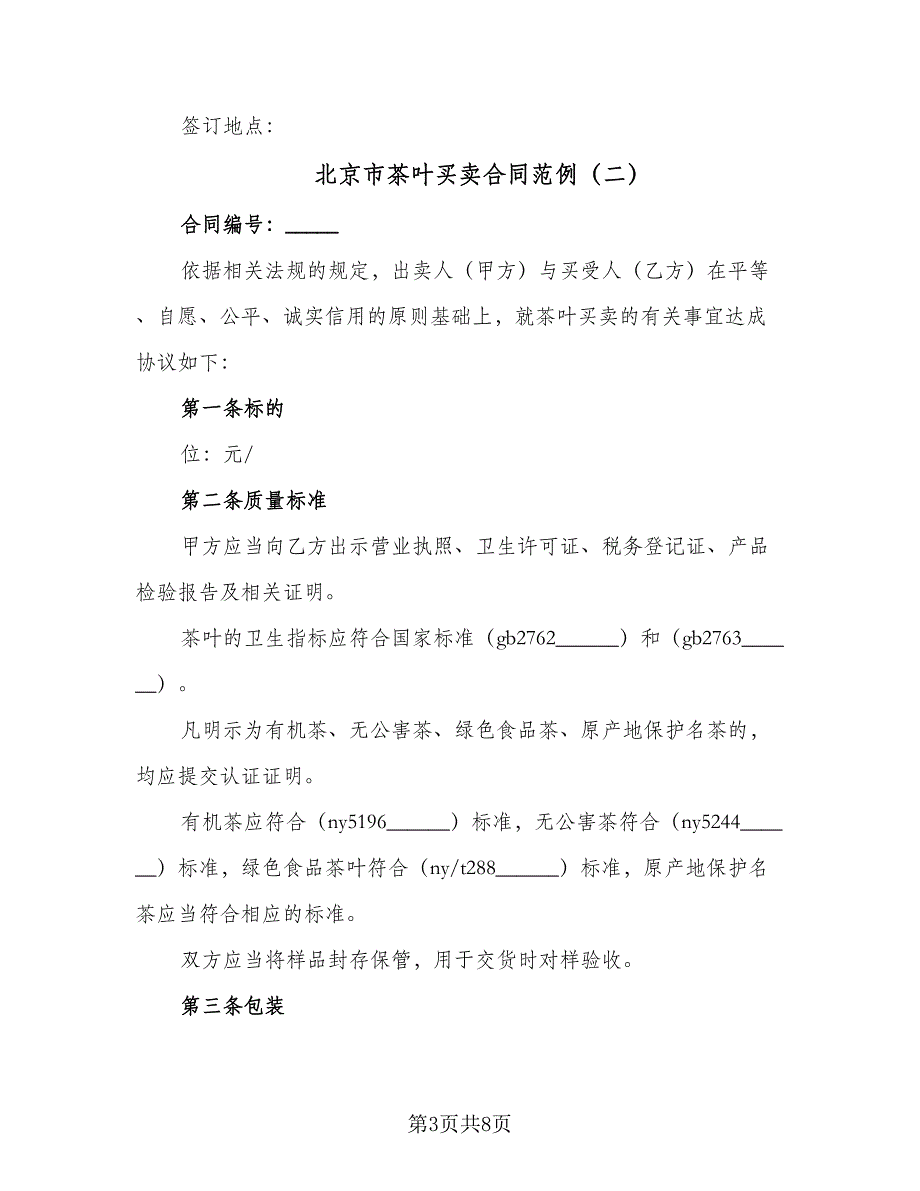 签订地点：
北京市茶叶买卖合同范例（二）
合同编号：_____
依据相关法规的规定，出卖人（甲方）与买受人（乙方）在平等
、自愿、公平、诚实信用的原则基础上，就茶叶买卖的有关事宜达成
协议如下：
第一条标的
位：元/
第二条质量标准
甲方应当向乙方出示营业执照、卫生许可证、税务登记证、产品
检验报告及相关证明。
茶叶的卫生指标应符合国家标准（gb2762______）和（gb2763____
__）。
凡明示为有机茶、无公害茶、绿色食品茶、原产地保护名茶的，
均应提交认证证明。
有机茶应符合（ny5196______）标准，无公害茶符合（ny5244____
__）标准，绿色食品茶叶符合（ny/t288______）标准，原产地保护名
茶应当符合相应的标准。
双方应当将样品封存保管，用于交货时对样验收。
第三条包装
第3页共8页